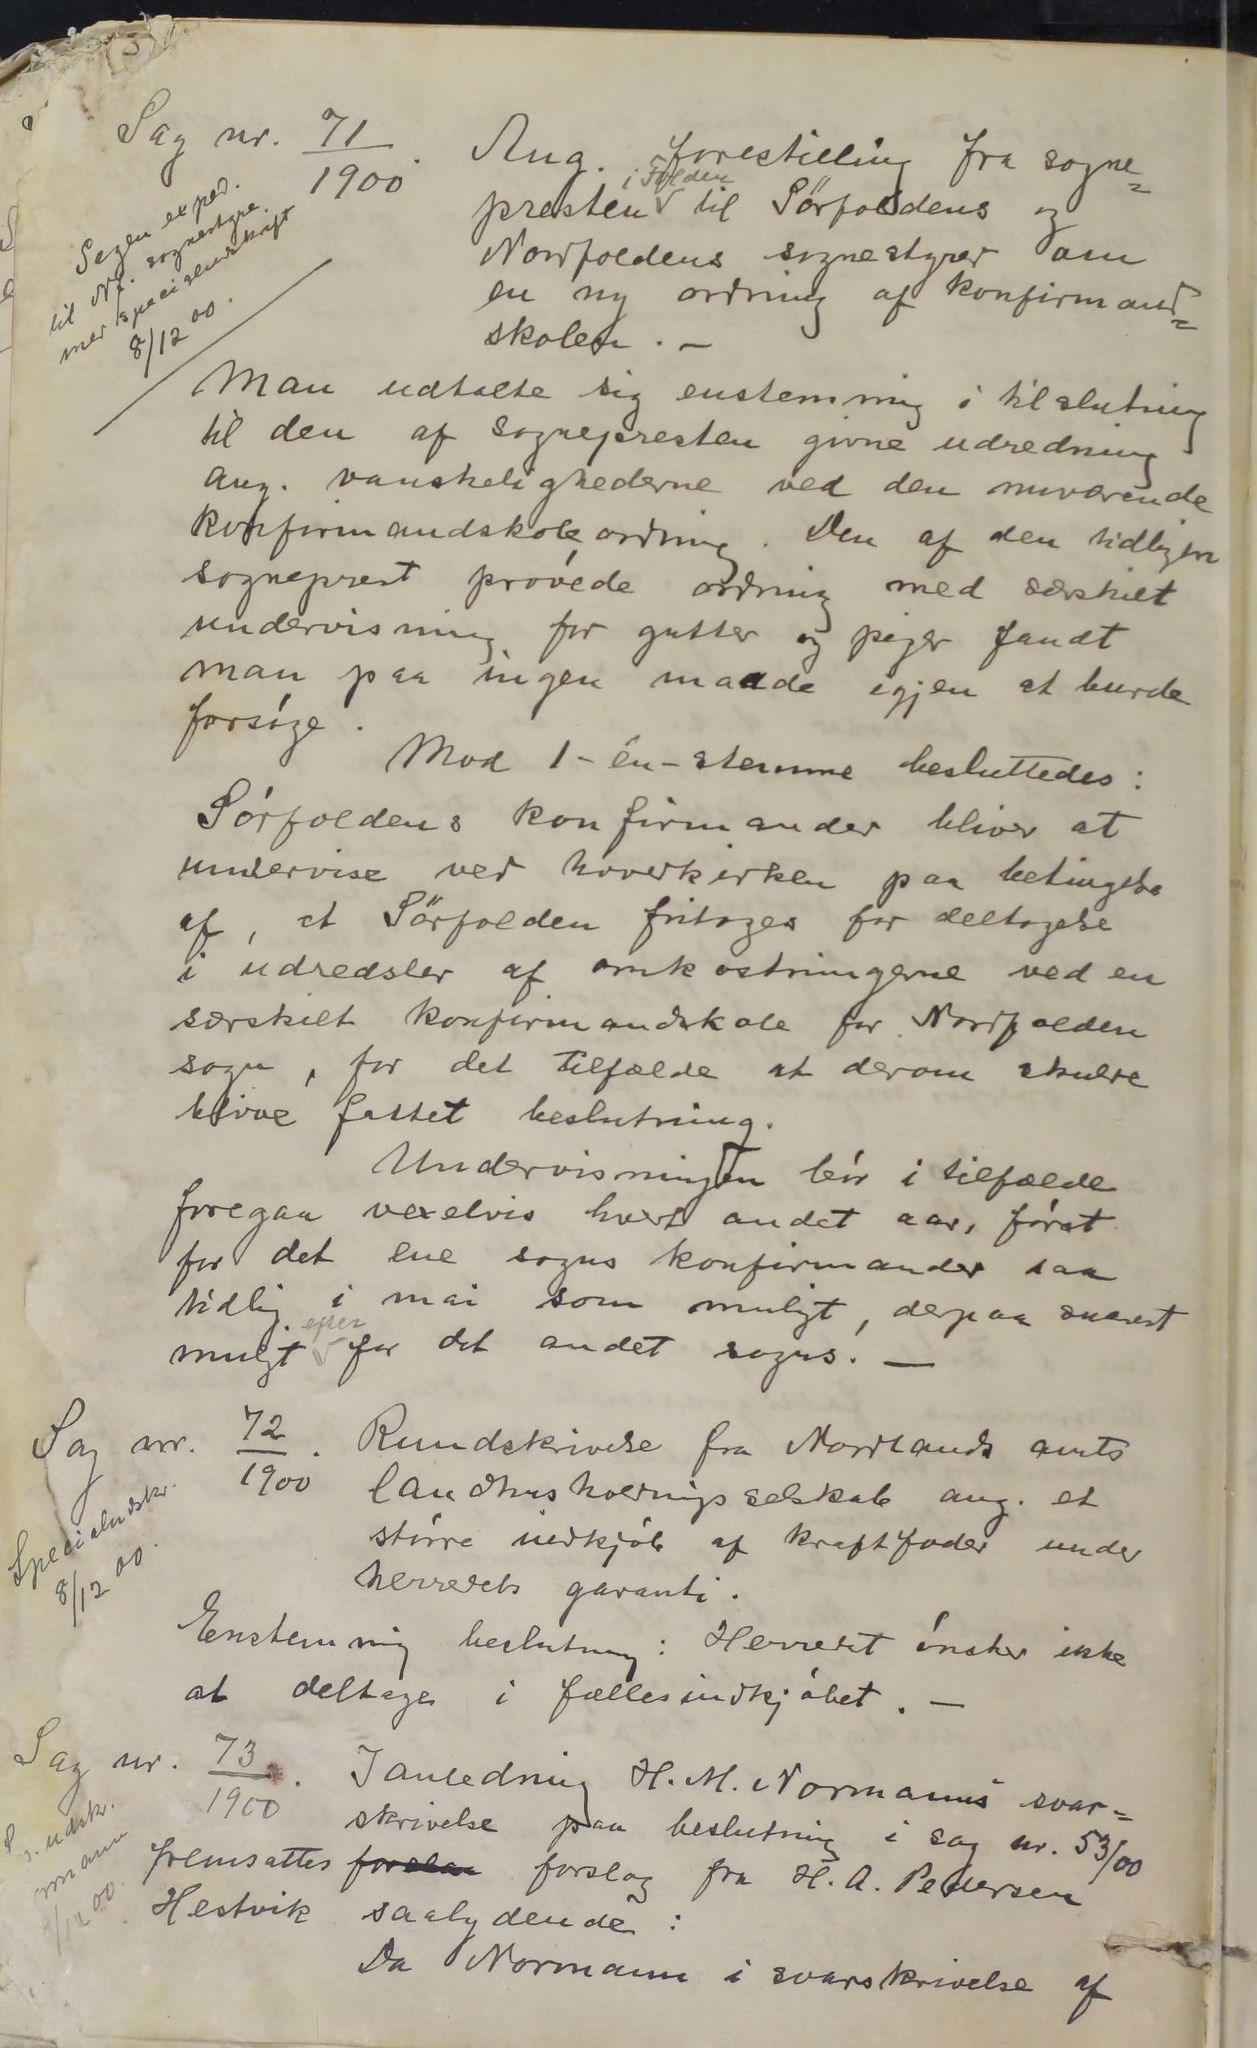 Sag nr. 71/1900. Ang. forestilling fra sogne=
presten i Folden til Sörfoldens og
Nordfoldens sognestyrer om
en ny ordning af konfirmand=
skolen. —
Sagen exped.
til Nf. sognestyre
med specialudskrift
8/12 00.
Man udtalte sig enstemmig i tilslutning
til den af sognepresten givne udredning
ang. vanskelighederne ved den nuværende
konfirmandskoleordning. Den af den tidligere
sogneprest prøvede ordning med særskilt
undervisning for gutter og piger fandt
man paa ingen maade igjen at burde
forsøge.
Mod 1 - én - stemme besluttedes:
Sørfoldens konfirmander bliver at
undervise ved hovedkirken paa betingelse
af, at Sörfolden fritages for deltagelse
i udredsler af omkostningerne ved en
særskilt konfirmandskole for Nordfolden
sogn, for det tilfælde at derom skulde
blive fattet beslutning.
Undervisningen bør i tilfælde
foregaa vexelvis hvert andet aar, først
for det ene sogns konfirmander saa
tidlig i mai som muligt, derpaa snarest
muligt for det andet sogns. —
Sag nr. 72/1900. Rundskrivelse fra Nordlands amts
landhusholdningsselskab ang. et
større indkjøb af kraftfoder under
herredets garanti.
Specialudskr.
8/12 00.
Enstemmig beslutning: Herredet ønsker ikke
at deltage i fællesindkjøbet. —
Sag nr. 73/1900. I anledning H. M. Normanns svar=
skrivelse paa beslutning i sag nr. 53/00
fremsattes forslag fra H. A. Pedersen
Hestvik saalydende:
udskr.
Da Normann i svarskrivelse af